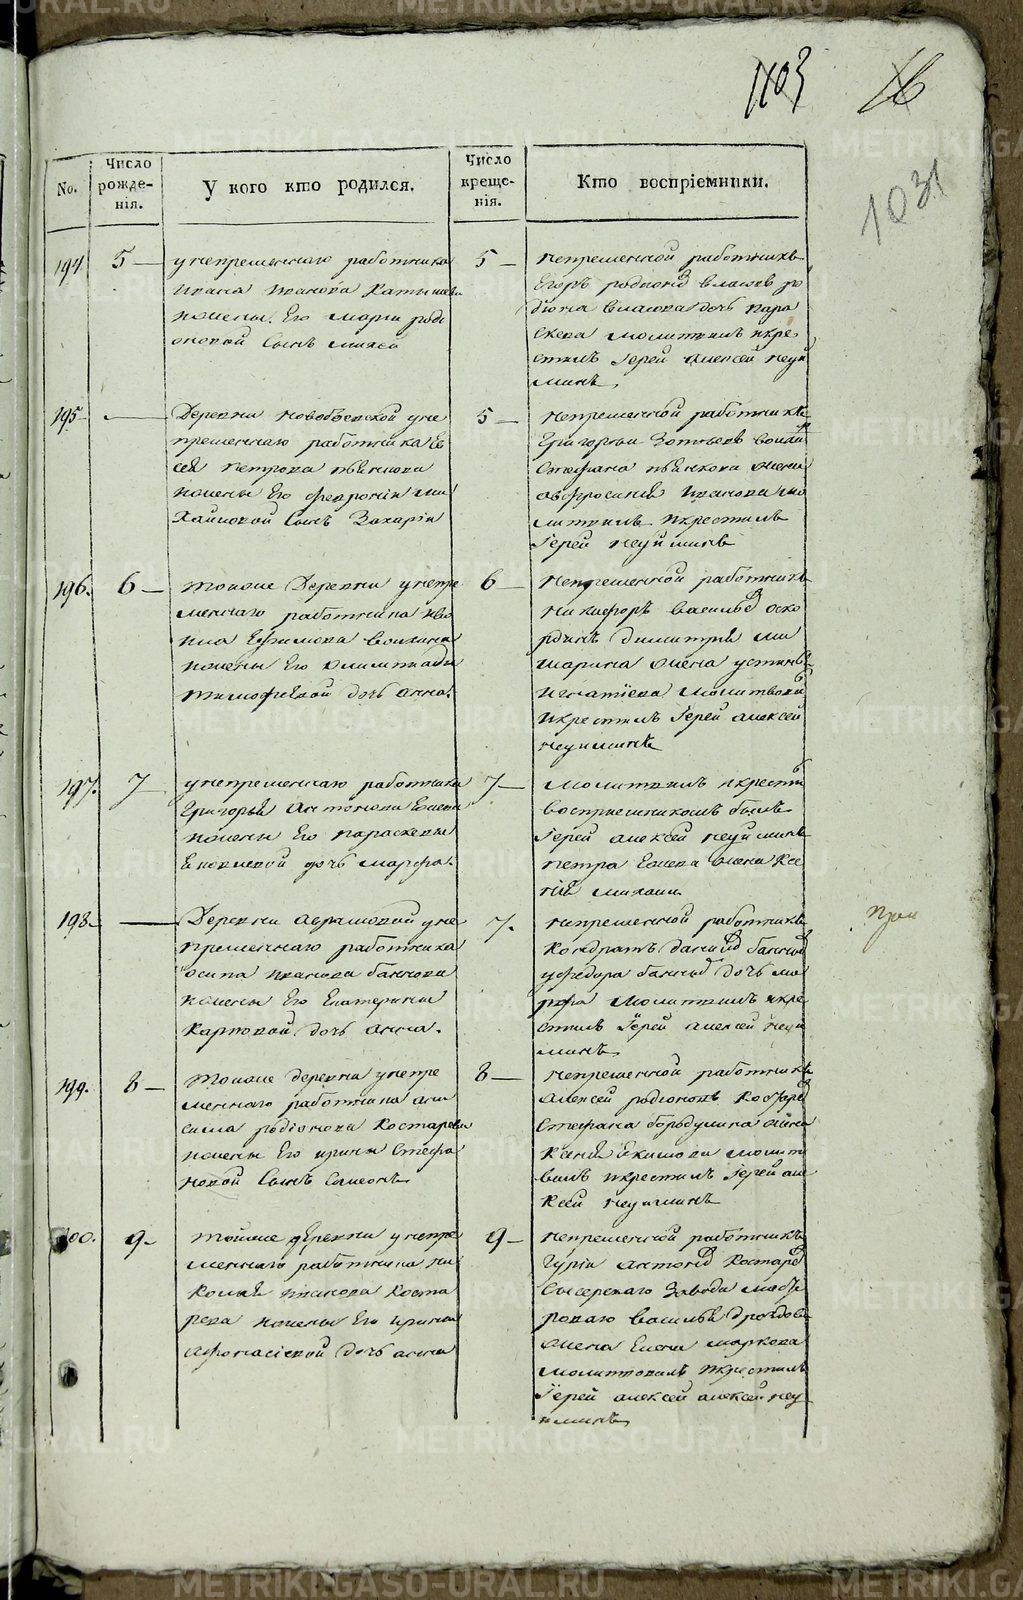 1103
16
1031
No.
Число рожде-нія.
У кого кто родился.
Число креще-нія.
Кто воспріемники.
194
5
унепременнаго работника
ивана иванова
ижены Его марiи роди
оновой сынъ
5
непременной работникъ
Егоръ родионов власов ро
діона власова дочь пара
скева молитвилъ икре
стилъ Іерей алексей неуй
минъ
195
Деревни новобоевской уне
пременнаго работника Ев
сея петрова пьянкова
иженъ Его февронiи ми
хайловой сынъ Захарiя
5
непременной работникъ
Григорьи
стефана пьянкова жена
афросинiя иванова мо
литвилъ икрестилъ
Іерей неуйминъ
196.
6
тоже Деревни унепре
меннаго работника
Ефимова
иженъ Его олимпиады
тимофиевой дочь анна.
6
непременной работникъ
никифоръ васильев
димитрiя
жена устинья
игнатiева молитвовал
икрестилъ Іерей алексей
неуиминъ
197.
7
унепременнаго работника
Григорья антонова
иженъ Его параскевы
Ековлевой дочь марфа.
7
молитвилъ икрестил
восприемникомъ былъ
Іерей алексей неуйминъ
петра жена ксе
нiя михаил.
198.
Деревни абрамовой уне
пременнаго работника
осипа иванова баннова
иженъ Его Екатерины
карповой дочь анна.
7.
непременной работникъ
кондратъ данилов баннов
уфедора баннов дочь ма
рфа молитвилъ икре
стилъ Іерей алексей неуй
минъ
При
199.
8
тоже деревни унепре
меннаго работника ани
сима родiонова костарева
иженъ Его ирины стефа
новой сынъ симеонъ
8
непременной работникъ
алексей родионовъ
стефана бородулина жена
ксенiя Екимова молит
вилъ икрестилъ Іерей але
ксей неуиминъ
200.
9
тойже деревни унепре
меннаго работника ни
колая иванова коста
рева иженъ Его ирины
афонасiевой дочь анна
9
непременной работникъ
гурiи антонов костарев
сысерскаго завода масте
роваго василья дроздова
жена Елена маркова
молитвовалъ икрестилъ
Іерей алексей алексей неу
иминъ
METRIKI.GASO-URAL.RU